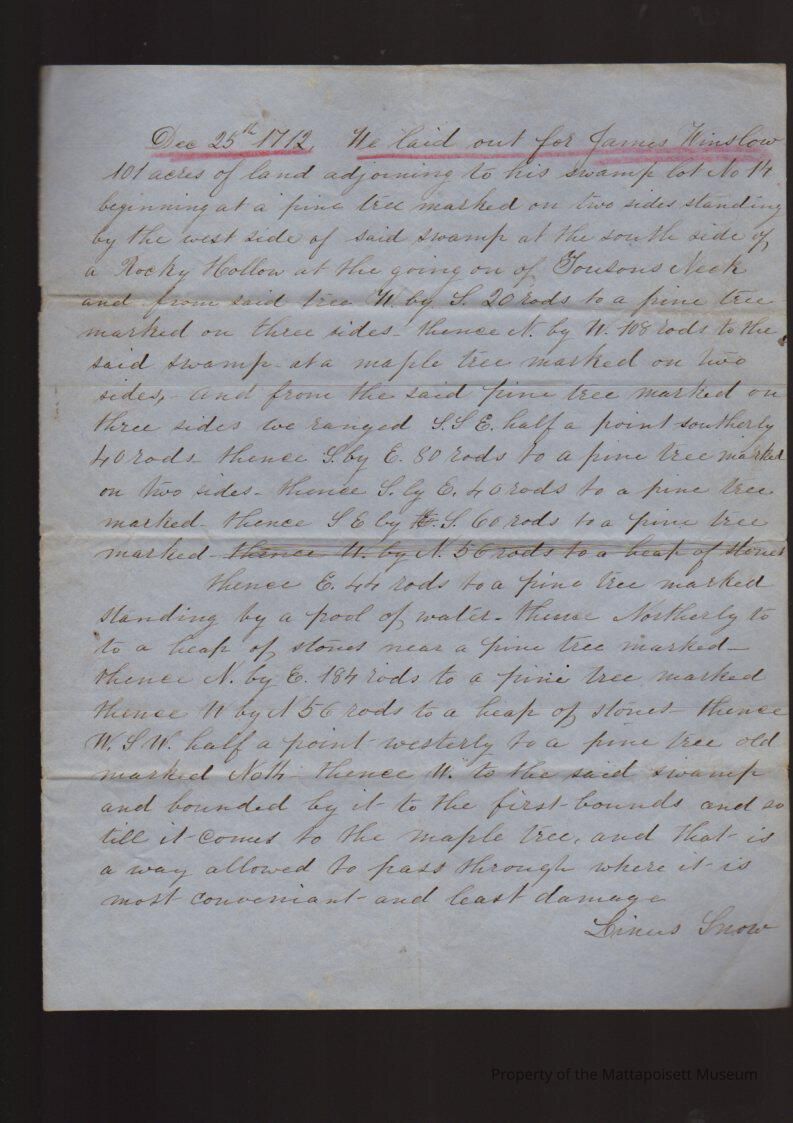 Dec 25th 1712. We laid out for James Winslow
101 acres of land adjoining to his swamp lot No 14
beginning at a pine tree marked on two sides standing
by the west side of said swamp at the south side of
a Rocky Hollow at the going on of Towsons Neck
and from said tree W. by S. 20 rods to a pine tree
marked on three sides - thence N. by W. 108 rods to the
said swamp - at a maple tree marked on two
sides, - and from the said pine tree marked on
three sides we ranged S.S.E. half a point southerly
40 rods - thence S. by E. 80 rods to a pine tree marked
on two sides - thence S. by E. 40 rods to a pine tree
marked - thence S E by S. 60 rods to a pine tree
marked - thence W. by N. 56 rods to a heap of stones
thence E. 44 rods to a pine tree marked
standing by a pool of water - thence Northerly to
to a heap of stones near a pine tree marked -
thence N. by E. 184 rods to a pine tree marked
thence W by N 56 rods to a heap of stones - thence
W. S W. half a point westerly to a pine tree old
marked - thence W. to the said swamp
and bounded by it to the first bounds and so
till it comes to the maple tree, and that is
a way allowed to pass through where it is
most conveniant and least damage
Snow
Property of the Mattapoisett Museum